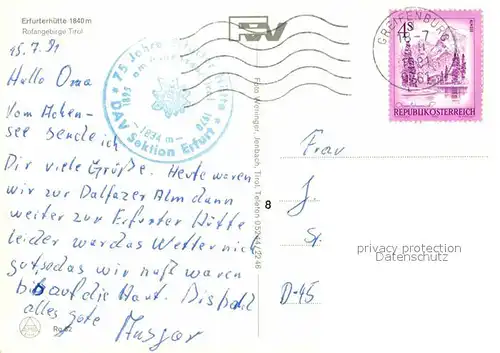 Erfurterhütte 1840 m
Rofangebirge Tirol
15.7.81
Hallo Oma
Vom Achen-
see sende ich
Dir viele Grüße. Heute waren
wir zur Dalfazer Alm dann
weiter zur Erfurter Hütte
leider war das Wetter nich
gut, sodas wir naß waren
bis auf die Haut. Bis bald
alles gute
Ro 82
75 Jahre
1895
1970
- 1834 m -
DAV Sektion Erfurt
PSV
Foto Weninger, Jenbach, Tirol, Telefon 05244/2246
8
GREIFENBURG
4S
REPUBLIK ÖSTERREICH
Frau
J.
St.
D-45
privacy protection
Datenschutz